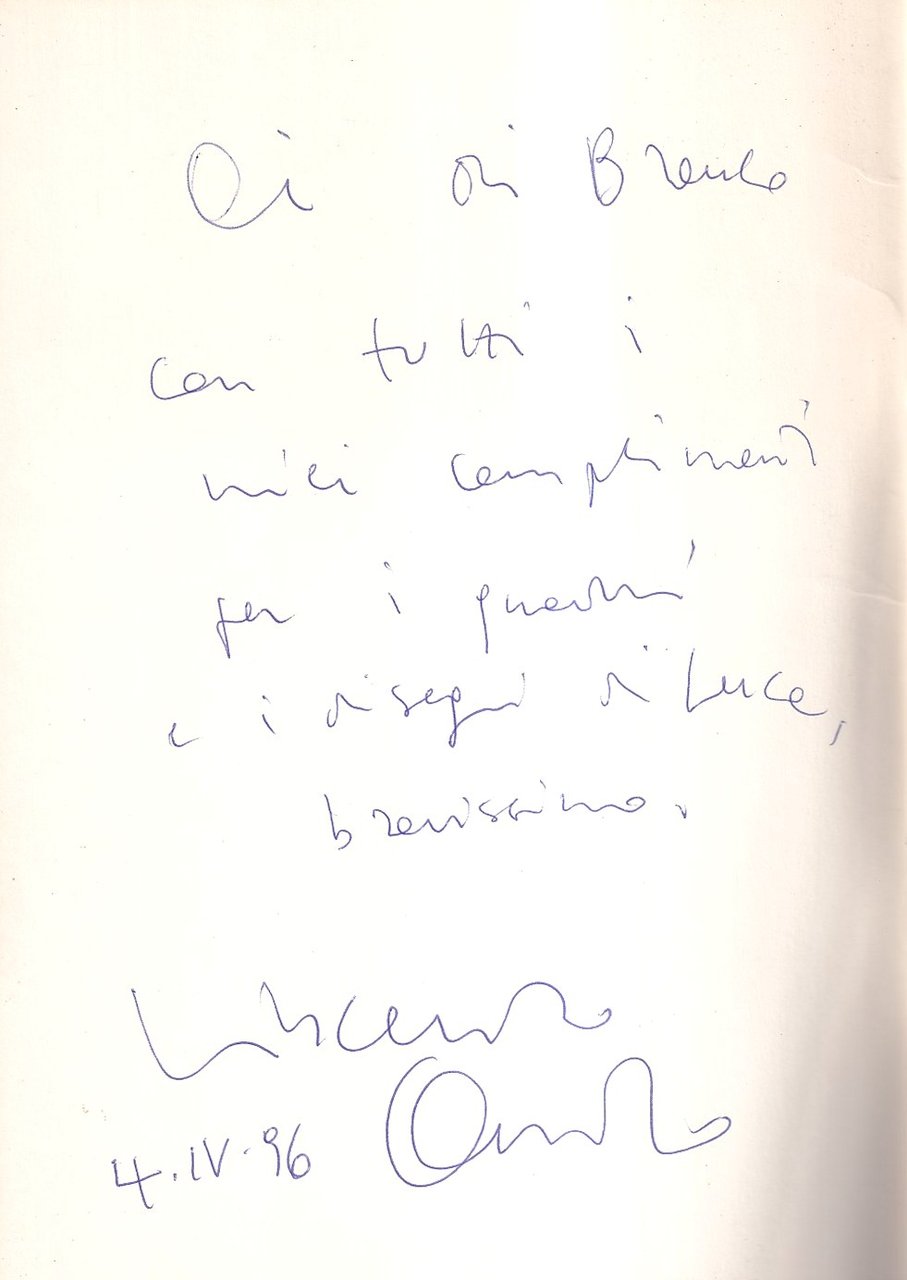 Ai Di Branco
con tutti i
miei complimenti
per i quadri
e i disegni di Luca,
bravissimo.
Vincenzo
4.IV.96